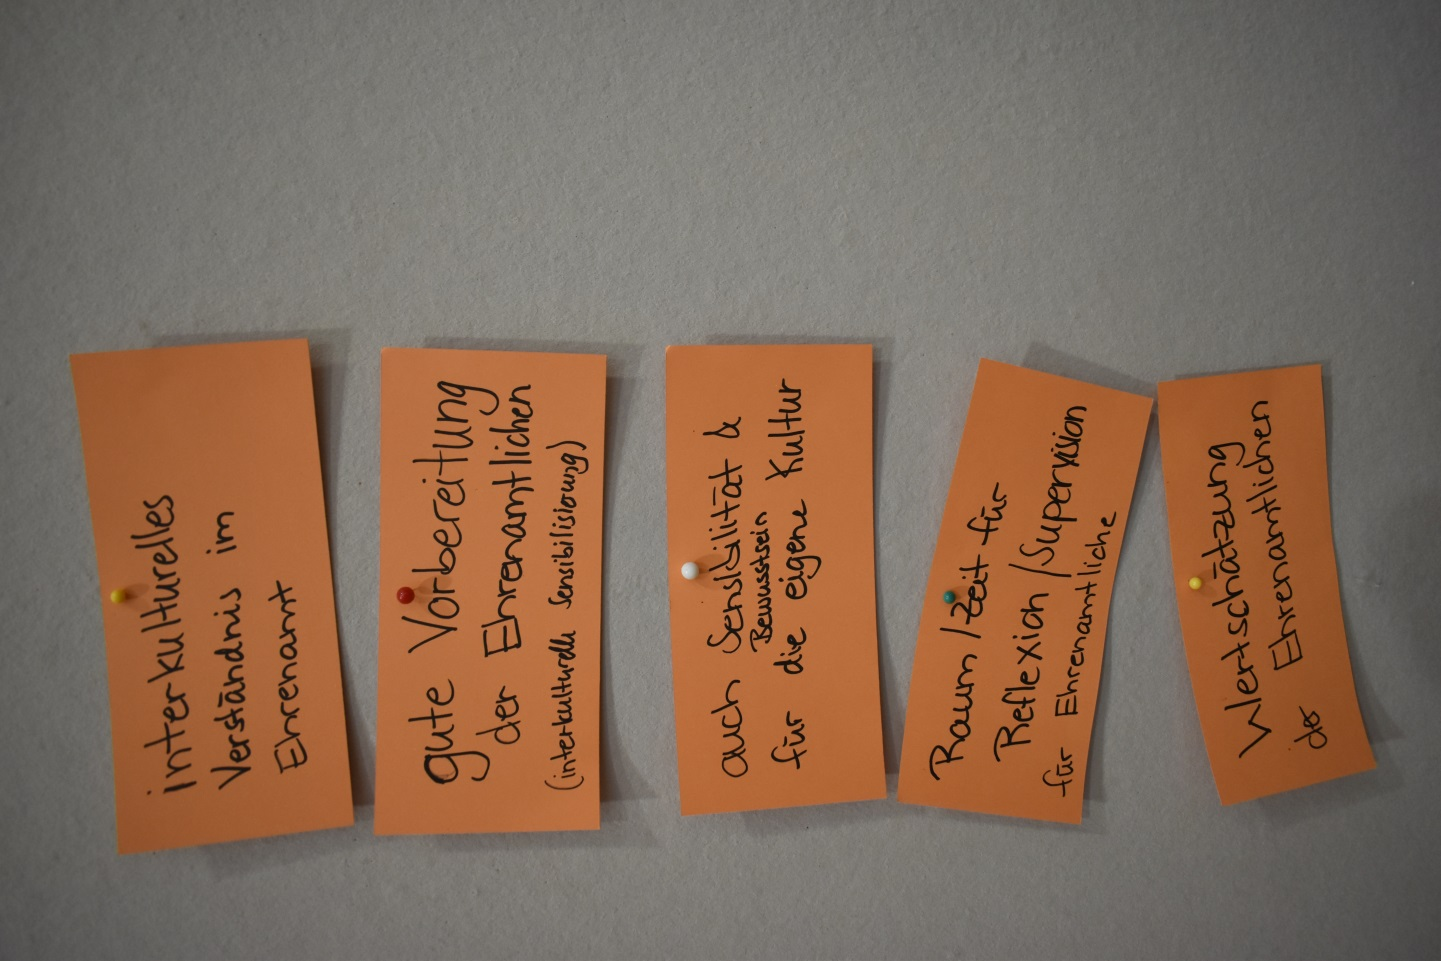 interkulturelles
Verständnis im
Ehrenamt
gute Vorbereitung
der Ehrenamtlichen
(interkulturelle Sensibilisiung)
auch Sensibilität &
Bewusstsein
für die eigene Kultur
Raum / Zeit für
Reflexion / Supervision
für Ehrenamtliche
Wertschätzung
der Ehrenamtlichen